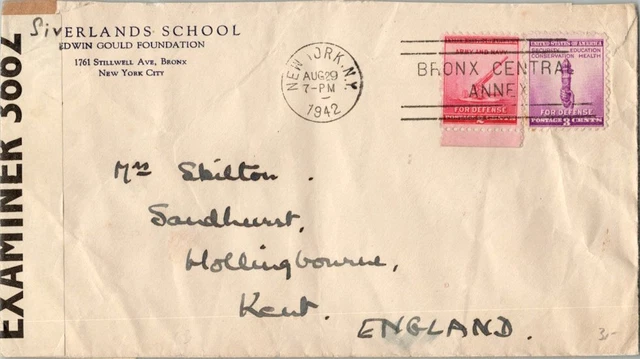 EXAMINER 3662
Silverlands SCHOOL
EDWIN GOULD FOUNDATION
1761 STILLWELL AVE, BRONX
NEW YORK CITY
NEW YORK, N.Y.
AUG 29
7-PM
1942
BRONX CENTRAL
ANNEX
UNITED STATES OF AMERICA
ARMY AND NAVY
FOR DEFENSE
2
UNITED STATES OF AMERICA
SECURITY EDUCATION
CONSERVATION HEALTH
FOR DEFENSE
POSTAGE 3 CENTS
Mrs Skilton.
Sandhurst,
Hollingbourne,
Kent.
ENGLAND.
3/-